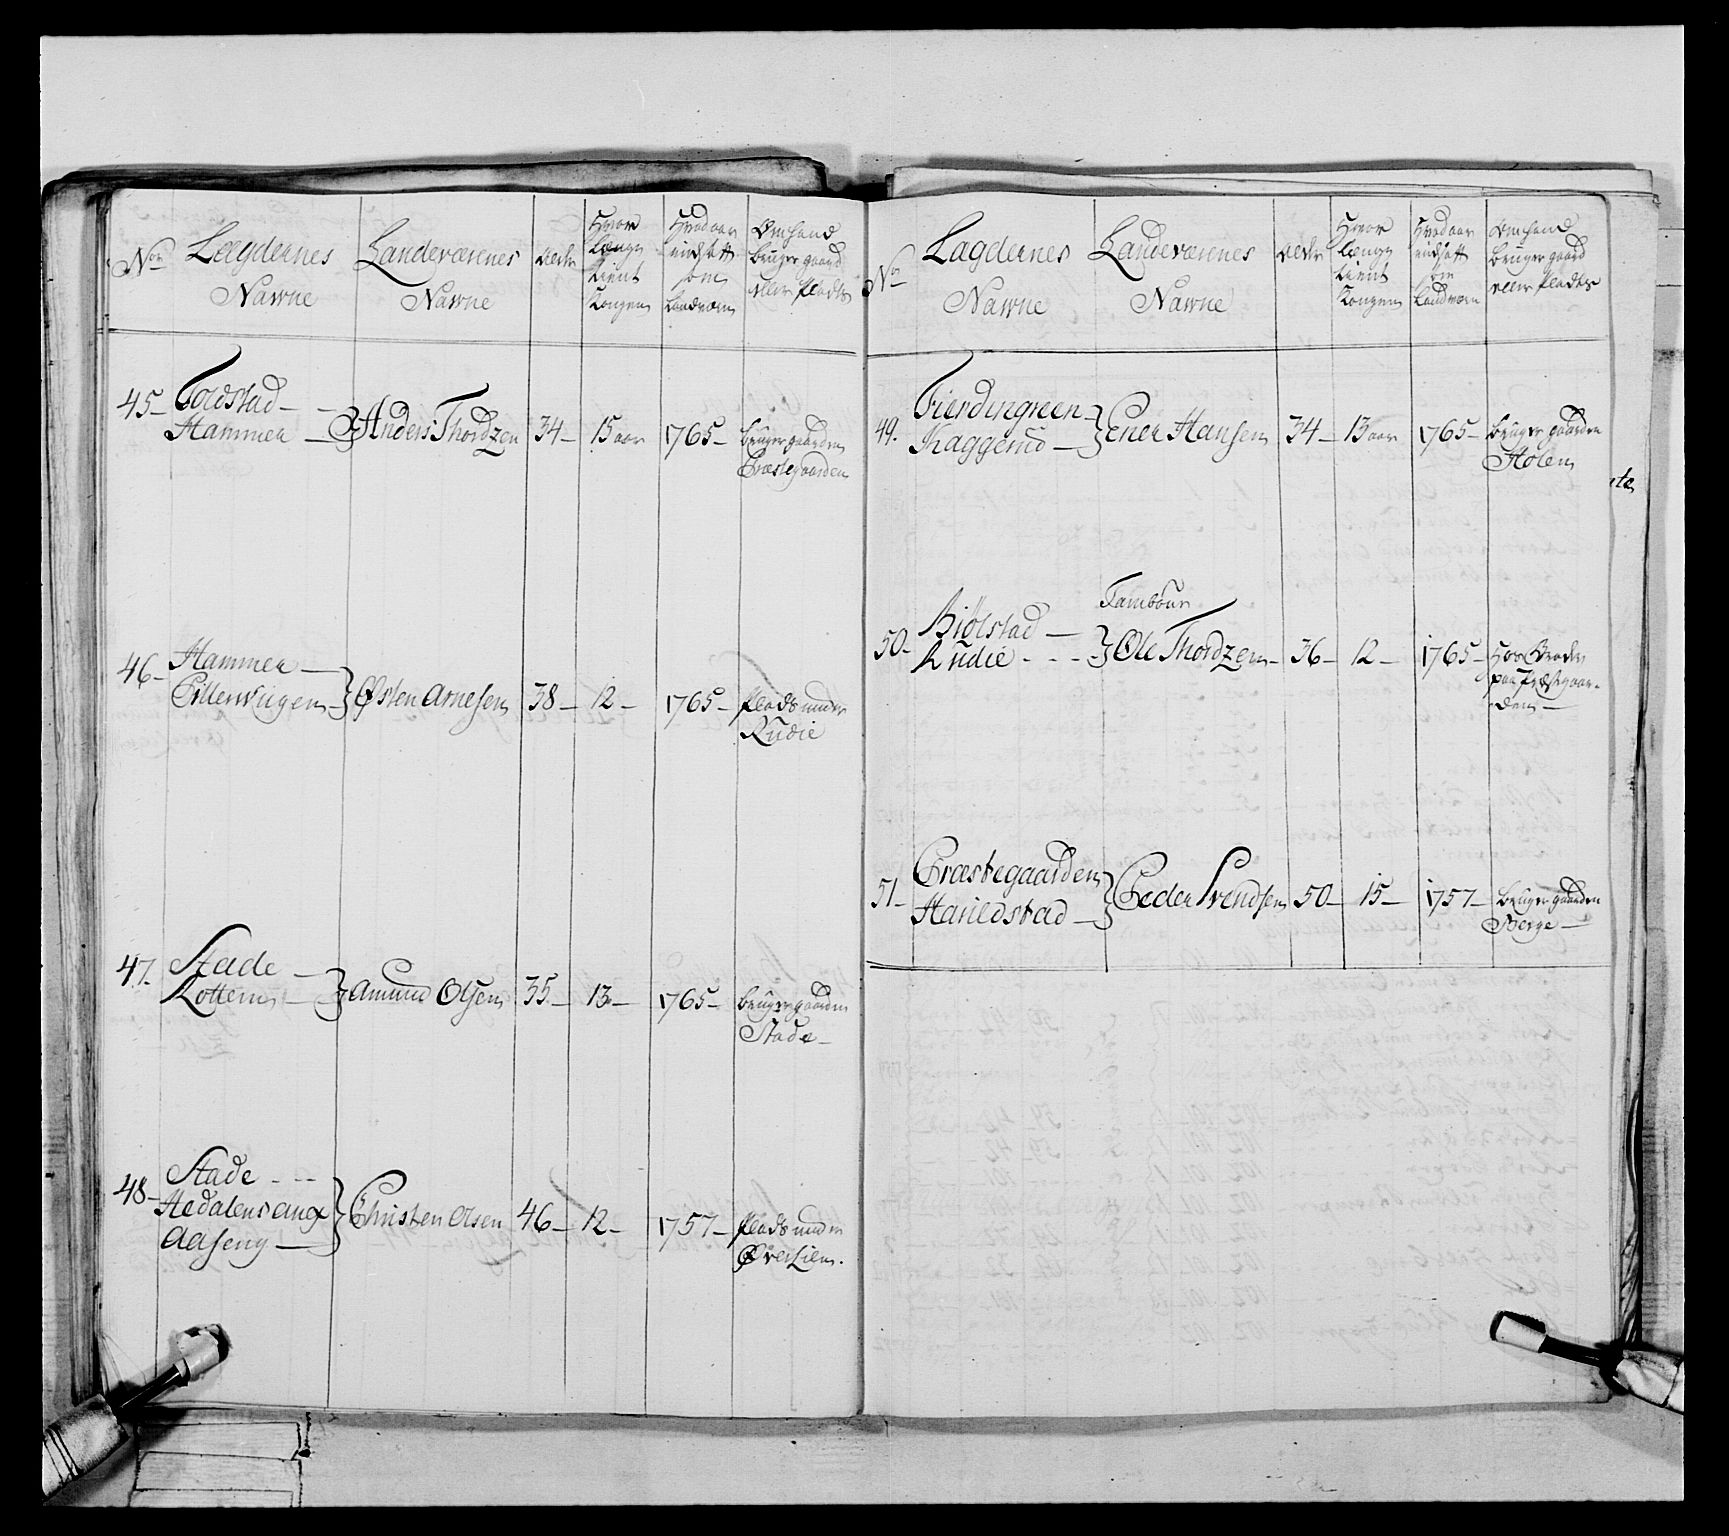 No
Lægdernes
Nawne
Landeværnes
Nawne
Alder
Hvor
længe
tient
Kongen
Hvad aar
indsatt
som
Landværn
Om hand
bruger gaard
eller Plads
45 Toldstad
Hammer } Anders Thordzen 34 15 aar 1765 bruger gaarden
Præstegaarden
46 Hammer
Pillerviigen } Østen Arnesen 38 12 1765 Plads under
Rudie
47. Stade
Kottem } Amund Olsen 35 13 1765 bruger gaarden
Stade
48 Stade
Hedalens anex
Aaseng } Christen Olsen 46 12 1757 Plads under
Øver Lien.
No
Lagdernes
Nawne
Landeværnes
Nawne
Alder
Hvor
længe
tient
Kongen
Hvad aar
indsatt
som
Landværn
Om hand
bruger gaard
eller Plads
49. Fierdingreen
Kaggerud } Ener Hansen 34 13 aar 1765 bruger gaarden
Holen
Tambour
50 Biølstad
Rudie } Ole Thordzen 36 12 1765 Hos
paa Præstgaar-
den
51 Præstegaarden
Harildstad } Peder Svendsen 50 15 1757 bruger gaarden
Berge